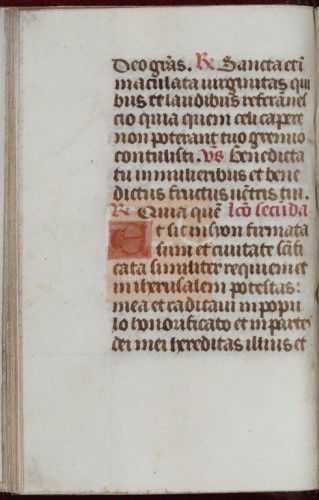 Deo grãs. R Sancta et ĩ
maculata virginitas qui
bus te laudibus referã nes
cio quia quem celi capere
non poterant tuo gremio
contulisti. Vs Benedicta
tu in mulieribus et bene
dictus fructus uẽtris tui.
R Quia quẽ lcõ secũda
Et sic in syon firmata
sum et civitate scãfi
cata similiter requievi et
in iherusalem potestas
mea et radicavi in popu
lo honorificato et in partes
dei mei hereditas illius et